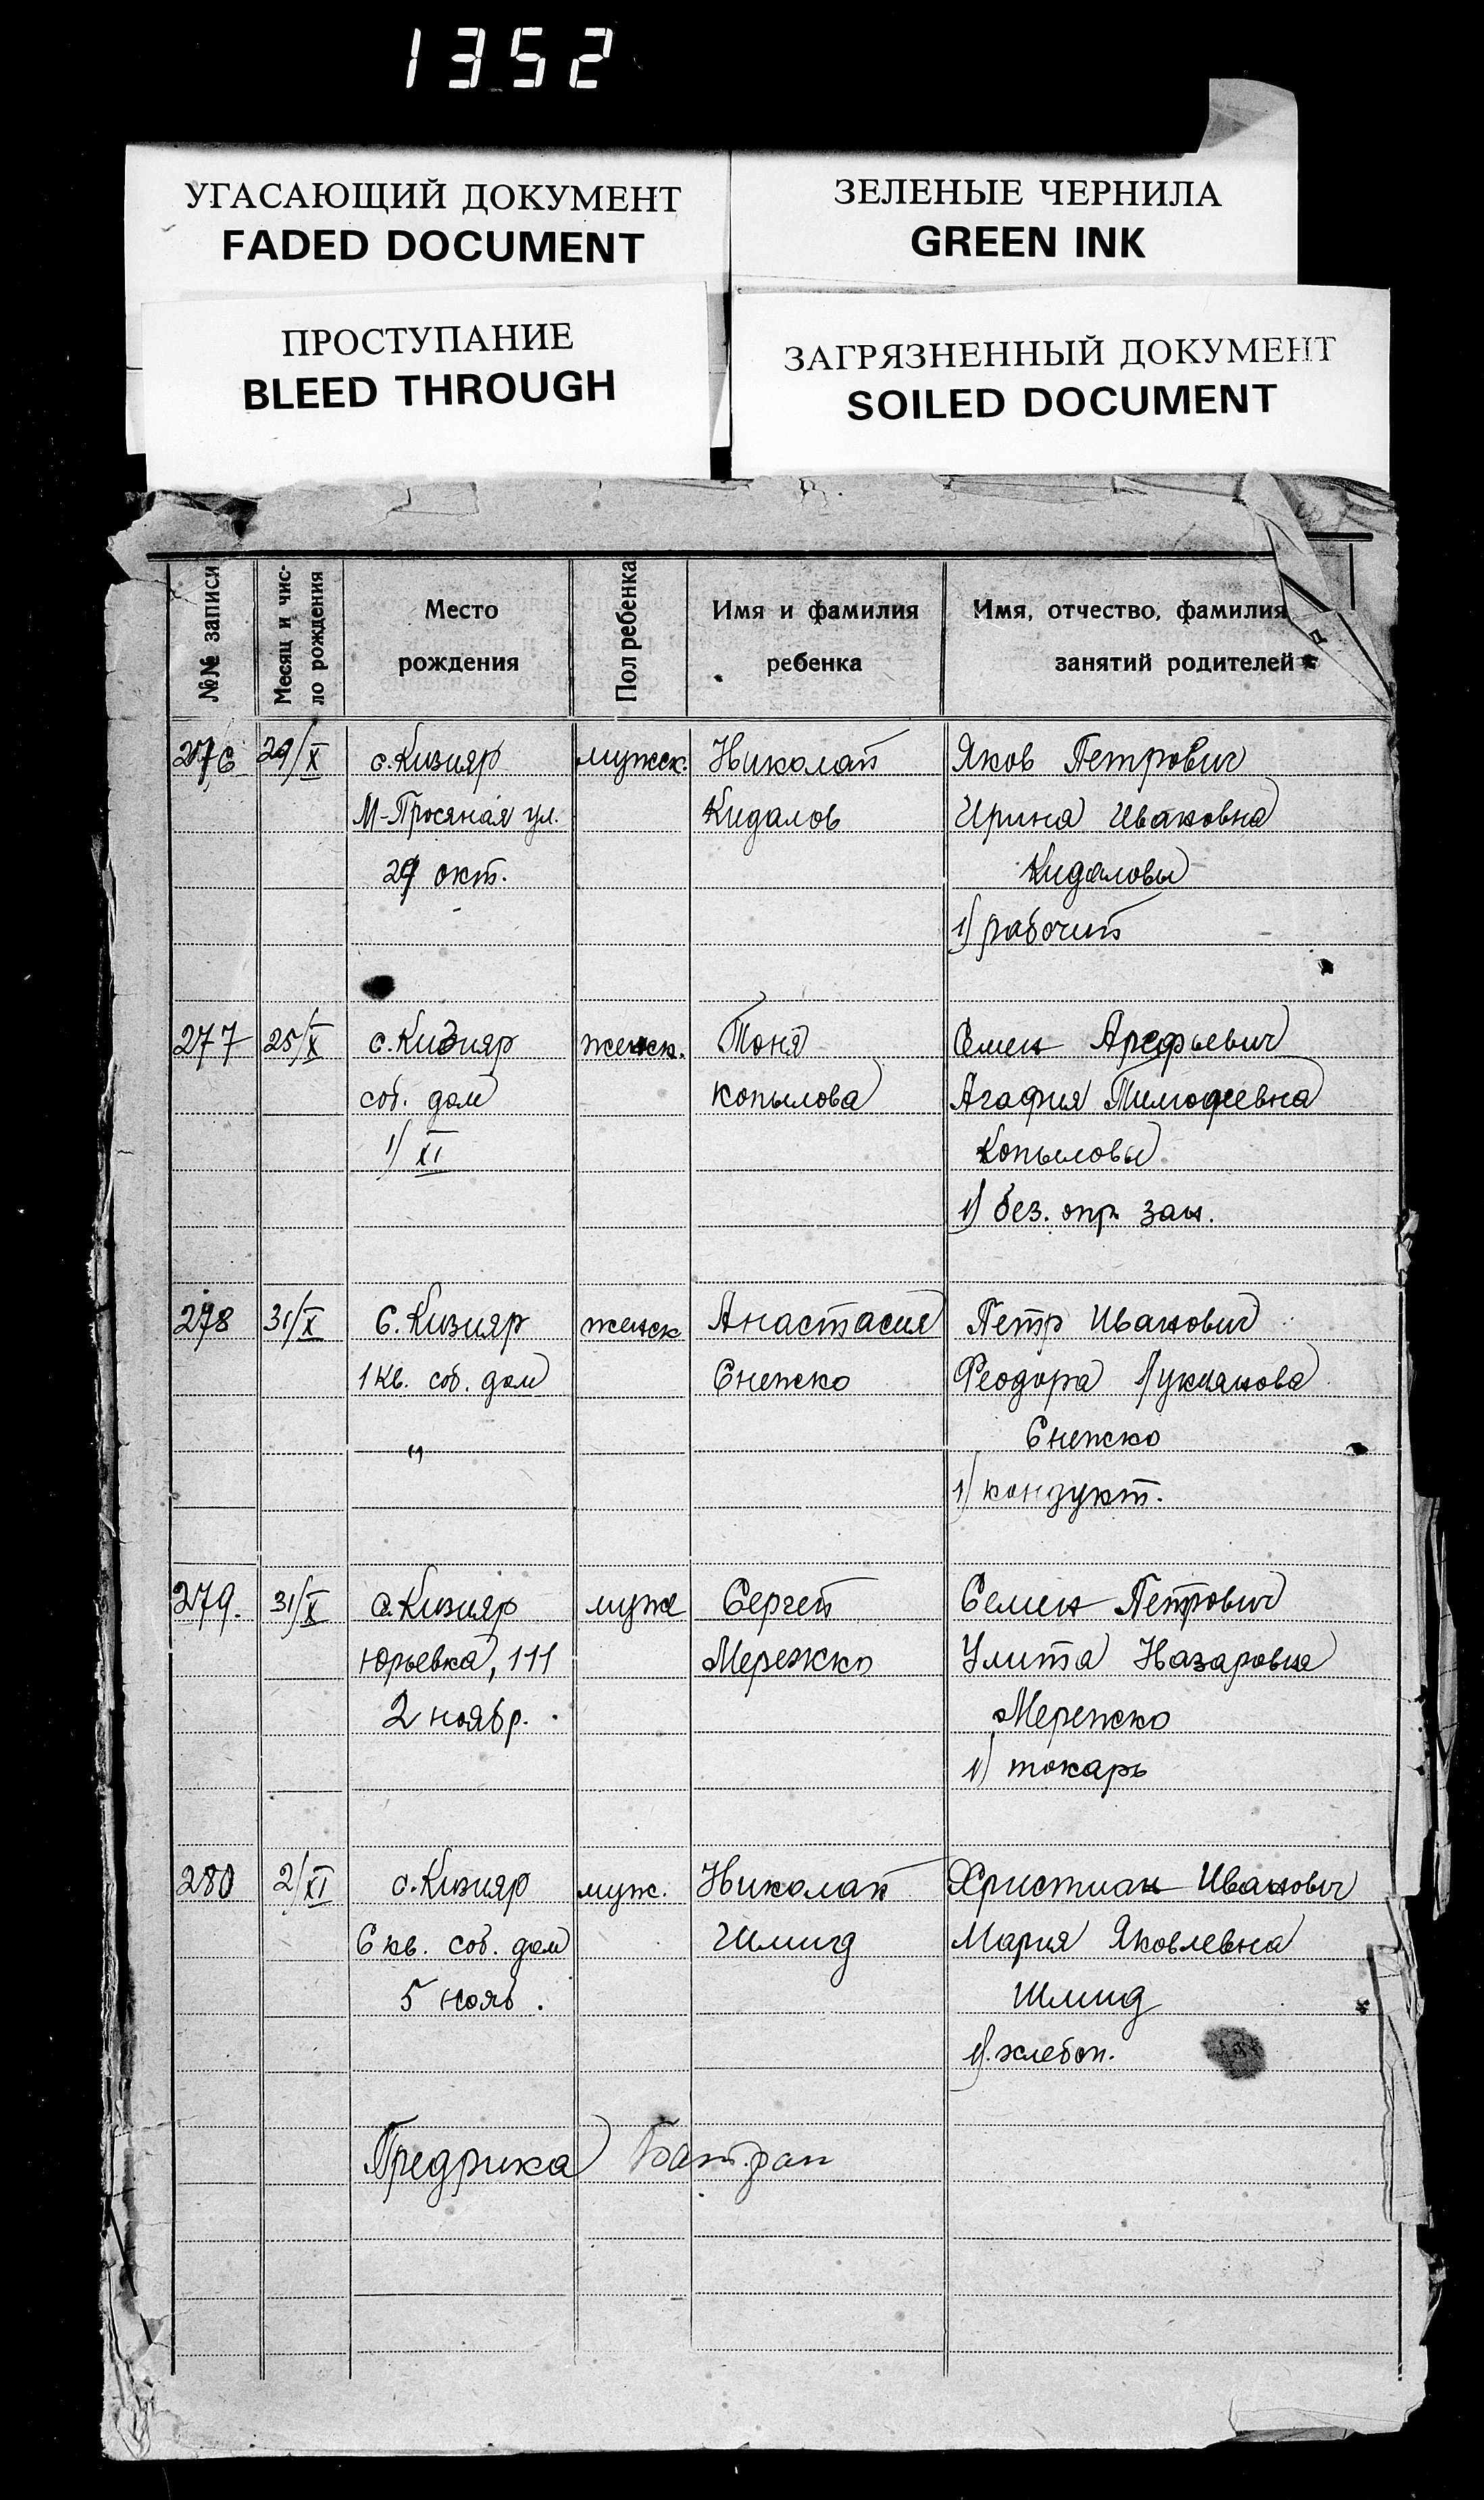 1352
УГАСАЮЩИЙ ДОКУМЕНТ
FADED DOCUMENT
ЗЕЛЕНЫЕ ЧЕРНИЛА
GREEN INK
ПРОСТУПАНИЕ
BLEED THROUGH
ЗАГРЯЗНЕННЫЙ ДОКУМЕНТ
SOILED DOCUMENT
№№ записи
Месяц и чис-
ло рождения
Место
рождения
Пол ребенка
Имя и фамилия
ребенка
Имя, отчество, фамилия
занятий родителей
276 29/X с. Кизияр мужск. Николай Яков Петрович
М-Просяная ул. Кидалов Ирина Ивановна
29 окт. Кидаловы
1) рабочий
277 25/X с. Кизияр женск. Тоня Семен Арефьевич
соб. дом Копылова Агафия Тимофеевна
1/XI Копыловы
1) без. опр. зан.
278 31/X с. Кизияр женск Анастасия Петр Иванович
1 кв. соб. дом Снежко Феодора Лукианова
" Снежко
1) кондукт.
279. 31/X с. Кизияр муже Сергей Семен Петрович
Юрьевка, 111 Мережко Улита Назаровна
2 ноябр. Мережко
1) токарь
280 2/XI с. Кизияр муж. Николай Христиан Иванович
6 кв. соб. дом Шмид Мария Яковлевна
5 нояб. Шмид
1). хлебоп.